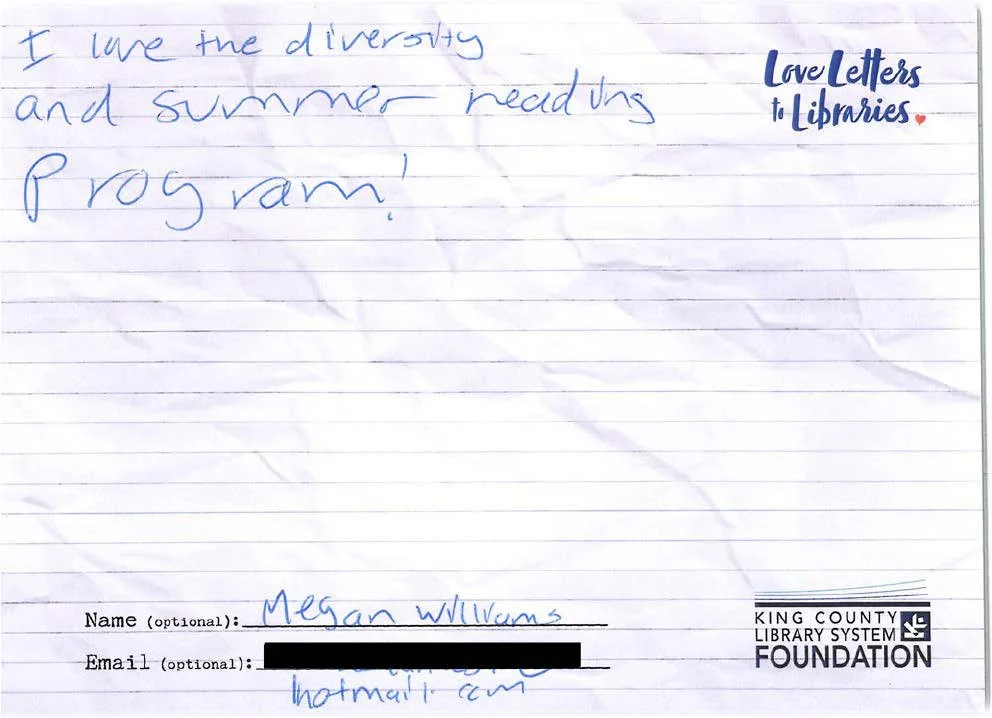 I love the diversity
and summer reading
Program!
Love Letters
to Libraries
Name (optional): Megan Williams
Email (optional):
hotmail. com
KING COUNTY
LIBRARY SYSTEM
FOUNDATION